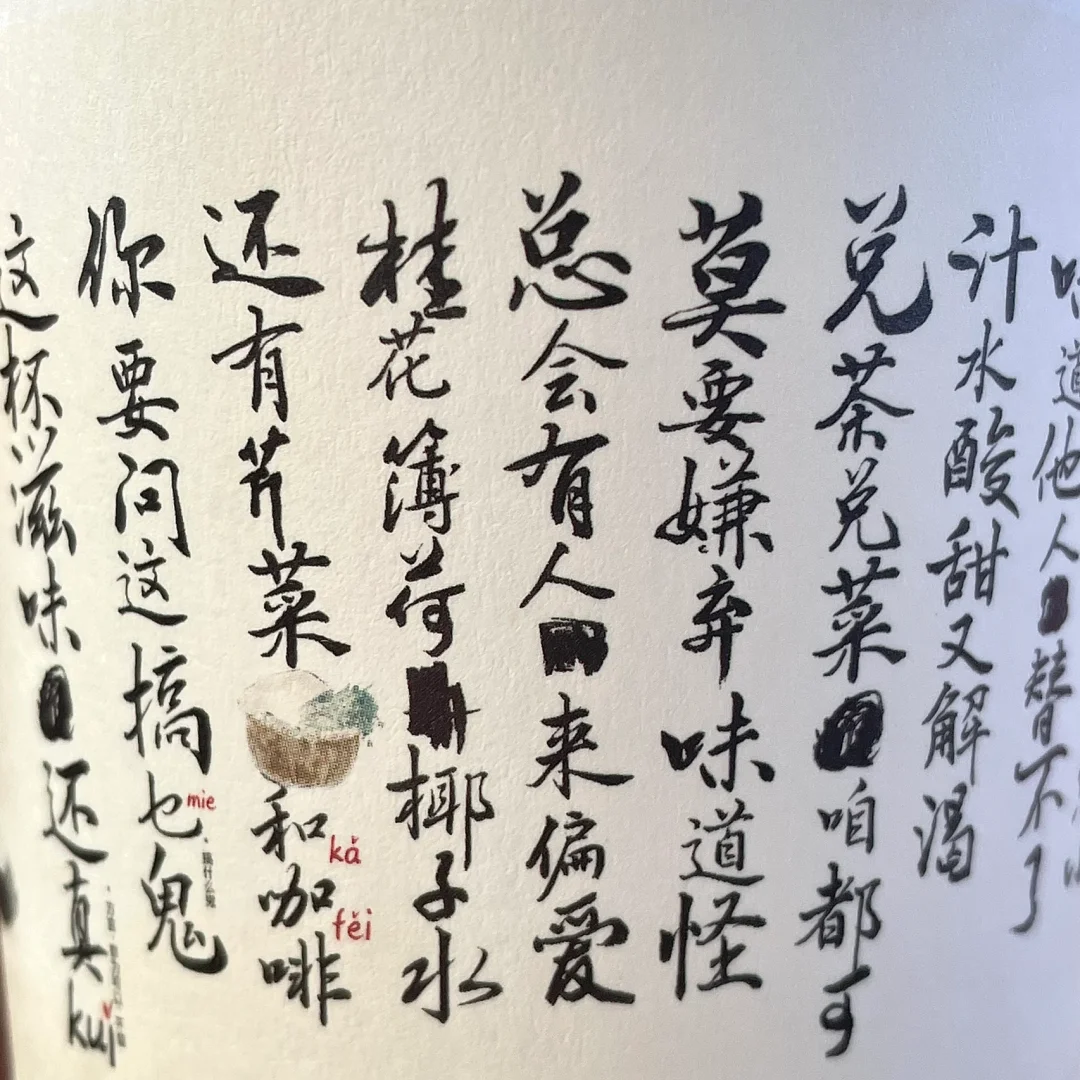 味道他人替不了
汁水酸甜又解渴
兑茶兑菜咱都可
莫要嫌弃味道怪
总会有人来偏爱
桂花簿荷椰子水
还有芹菜和咖啡
kǎ fěi
你要问这搞乜鬼
mie
·搞什么鬼
这杯滋味还真kuǐ